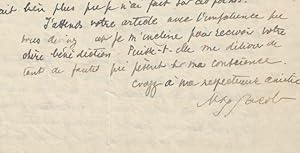 bien plus que je n'ai fait sur ces poèmes.
J'attends votre article avec l'impatience que
vous devinez et je m'incline pour recevoir votre
chère bénédiction. Puisse-t-elle me délivrer de
tant de fautes qui pèsent sur ma conscience.
Croyez à ma respectueuse amitié
Max Jacob